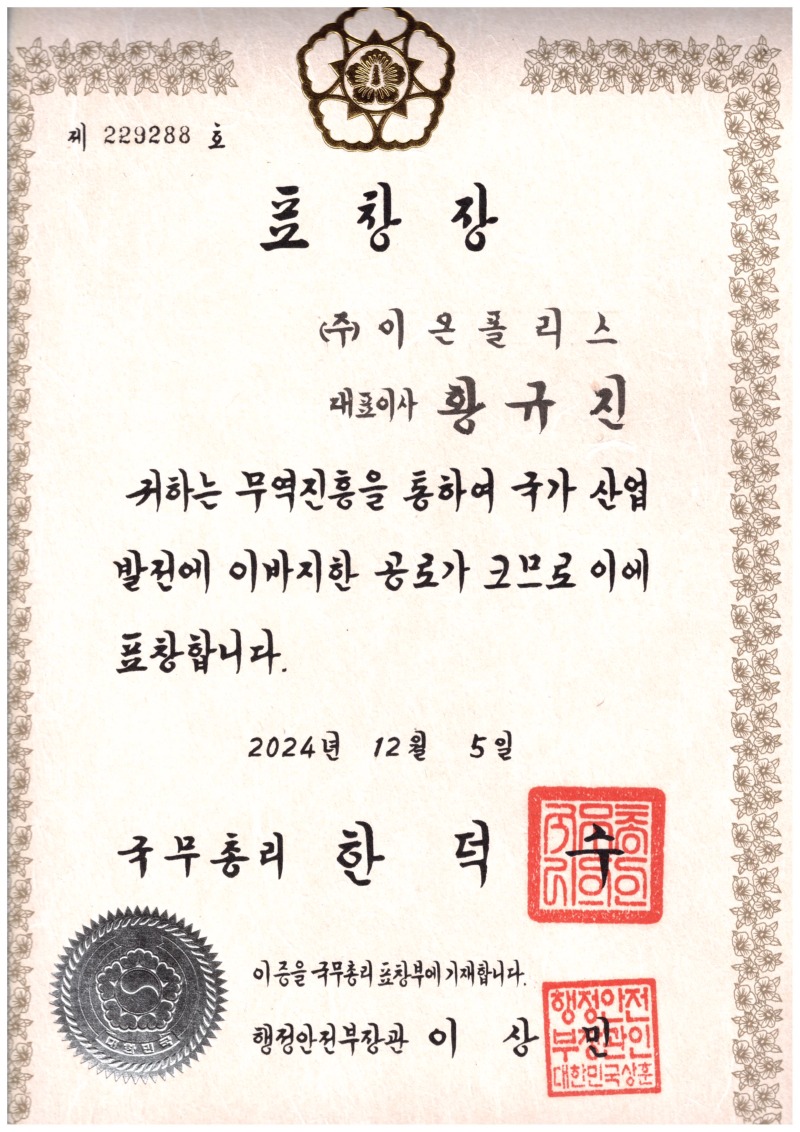 제 229288 호
표창장
(주)이온폴리스
대표이사 황규진
귀하는 무역진흥을 통하여 국가 산업
발전에 이바지한 공로가 크므로 이에
표창합니다.
2024년 12월 5일
국무총리 한덕수
이 증을 국무총리 표창부에 기재합니다.
행정안전부장관 이상민
행정안전
부장관인
대한민국상훈
대한민국